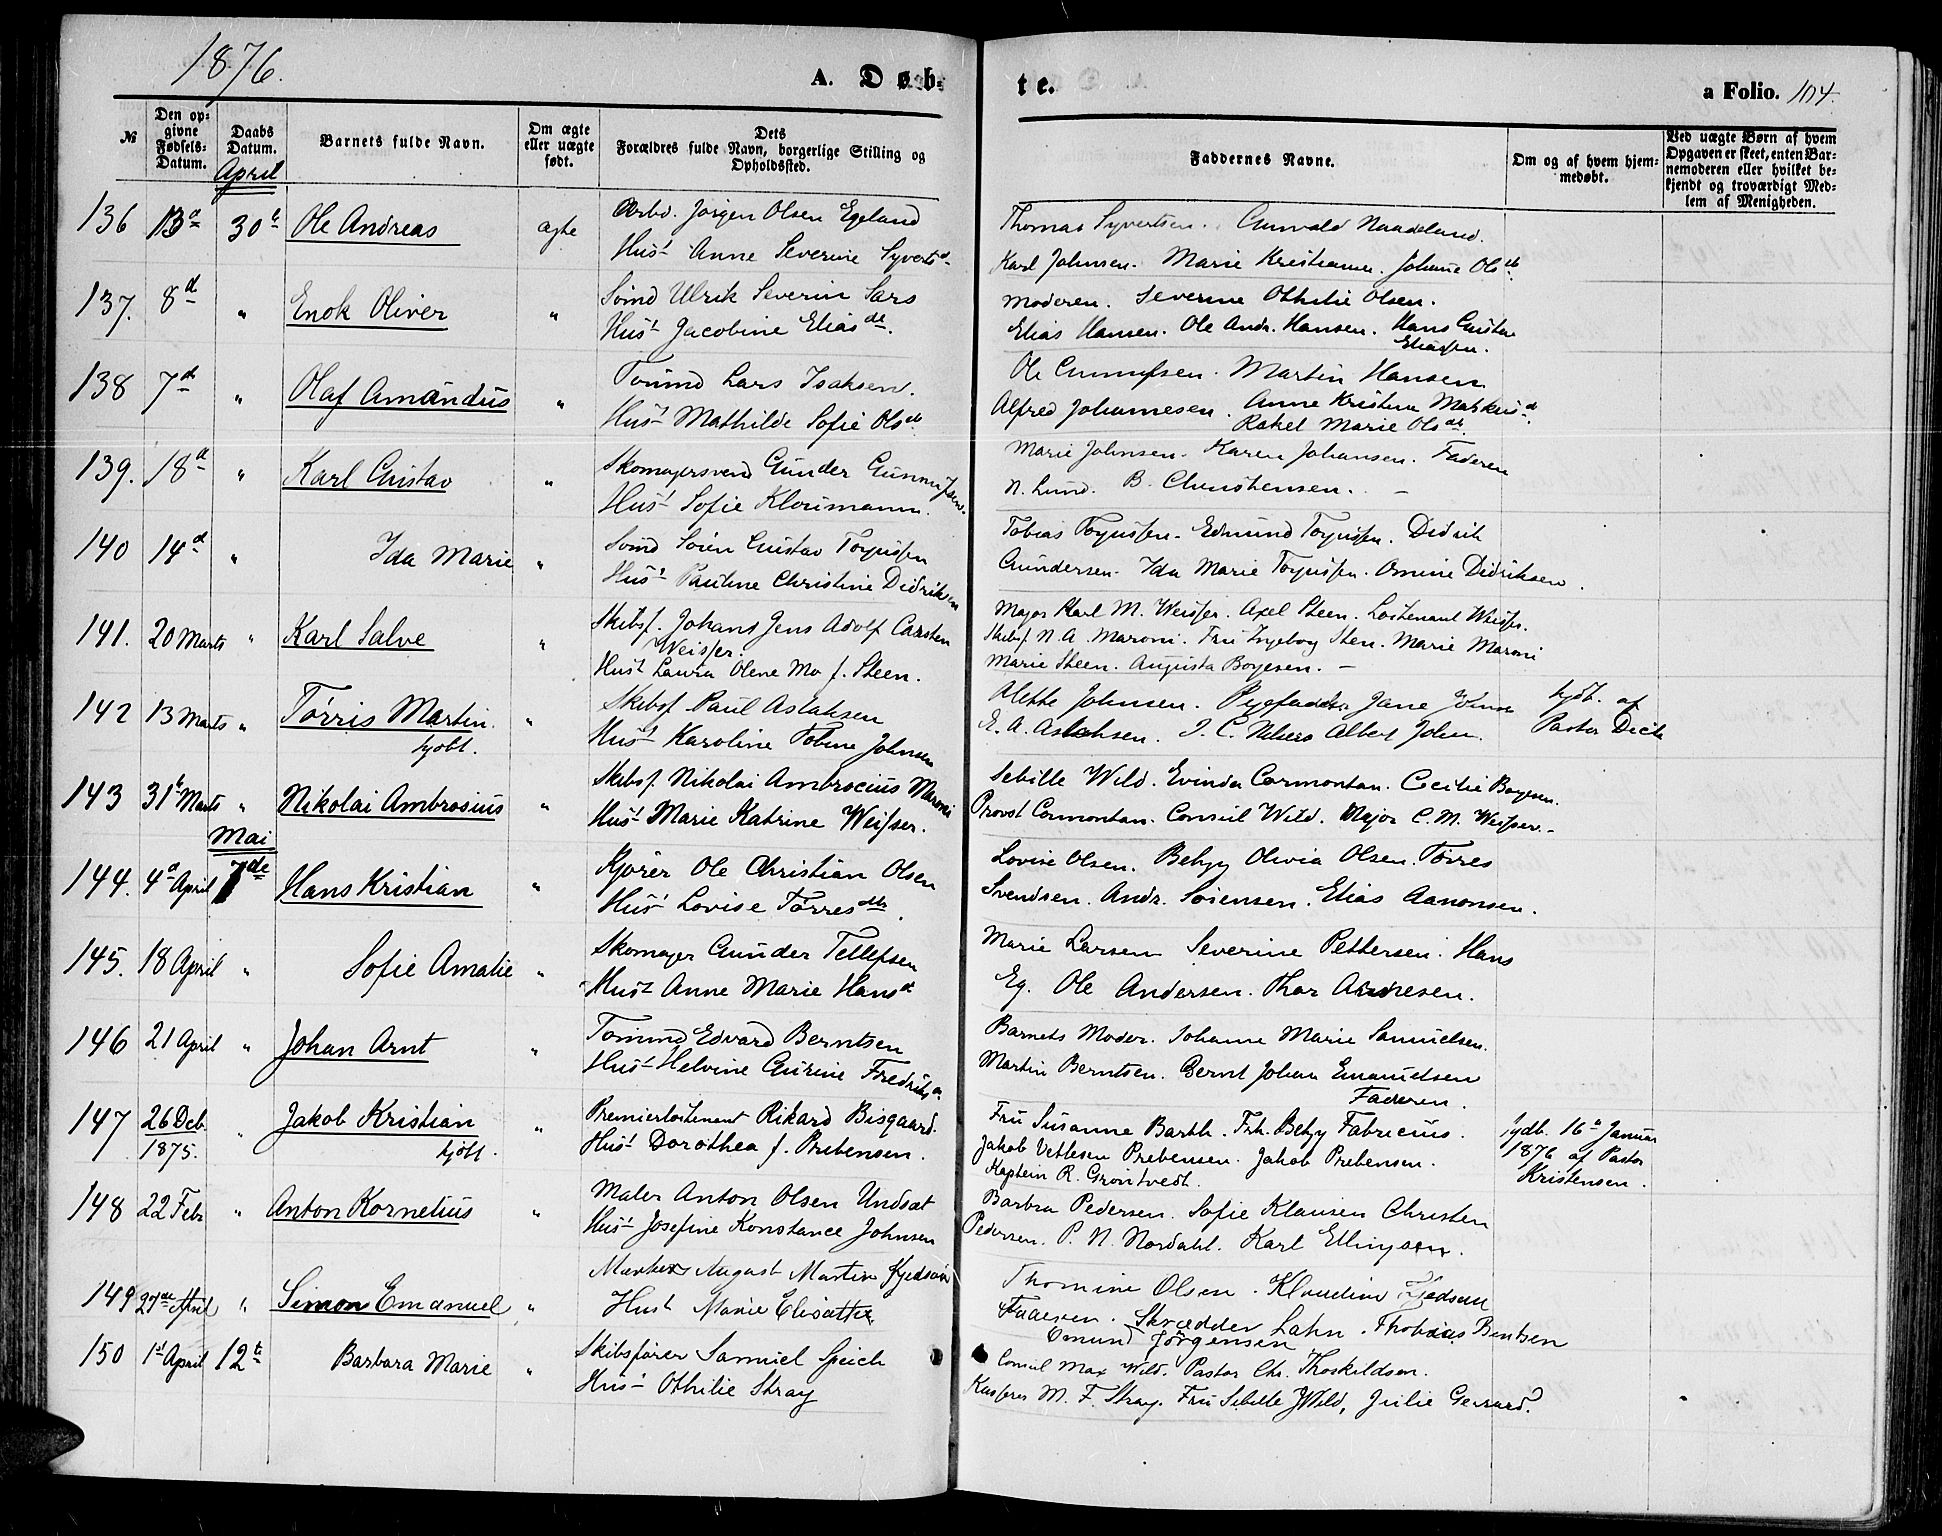 1876.
A. Døb-
te.
a Folio. 104.
№
Den op-
givne
Fødsels-
Datum.
Daabs
Datum.
April
Barnets fulde Navn.
Om ægte
eller uægte
født.
Dets
Forældres fulde Navn, borgerlige Stilling og
Opholdssted.
Faddernes Navne.
Om og af hvem hjem-
medøbt.
Ved uægte Børn af hvem
Opgaven er skeet, enten Bar-
nemoderen eller hvilket be-
kjendt og troværdigt Med-
lem af Menigheden.
136 13d 30t Ole Andreas ægte Arbd. Jørgen Olsen Egeland Thomas Syvertsen. Gunvald Naadeland.
Hust Anne Severine Syvertsd. Karl Johnsen. Marie Kristiane. Johanne Olsdt
137. 8d " Enok Oliver " Sømd Ulrik Severin Lars Moderen. Severine Othilie Olsen.
Hust Jacobine Eliasdt. Elias Hansen. Ole Andr. Hansen. Hans Gustav
Eliassen.
138 7d " Olaf Amandus " Tømmd Lars Isaksen. Ole Gunnufsen. Martin Hansen
Hust Mathilde Sofie Olsdt Alfred Johannesen. Anne Kristine Markusd.
Rakel Marie Olsdt.
139. 18d " Karl Gustav " Skomagersvend Gunder Gunnufsen. Marie Johnsen. Karen Johansen. Faderen
Hust Sofie Kloumann. N. Lund. B. Christensen. –
140 14d " Ida Marie " Sømd Søren Gustav Torjussen Tobias Torjussen. Edmund Torjussen. Didrik
Hust Pauline Christine Didriksen Gundersen. Ida Marie Torjussen. Omine Didriksen.
141. 20 Marts " Karl Salve " Skibsf. Johans Jens Adolf Carsten Major Karl M. Weisser. Axel Steen. Loitenant Weisser.
Weisser. Skibsf N. A. Maroni. Fru Ingeborg Sten. Marie Maroni
Hust Laura Olene Mo f. Steen. Marie Steen. Augusta Boyesen. –
142 13 Marts " Tørris Martin. " Skibsf Paul Aslaksen Alette Johnsen. Jane hjdb. af
hjdbt. Hust Karoline Tobine Johnsen E. A. Aslaksen. J. C. Albert John. Pastor
143 31t Marts " Nikolai Ambrosius " Skibsf. Nikolai Ambrocius Maroni Sebille Wild. Evinda Cormontan. Cecilie Boyesen.
Hust Marie Katrine Weisser. Provst Cormontan. Consul Wild. Major C. M. Weisser. –
Mai
144. 4d April 7de Hans Kristian " Kjører Ole Christian Olsen Lovise Olsen. Betzy Olivia Olsen. Tørres
Hust Lovise Tørresdtr. Svendsen. Andr. Sørensen. Elias Aanonsen.
145. 18 April " Sofie Amalie " Skomager Gunder Tellefsen Marie Larsen Severine Pettersen. Hans
Hust Anne Marie Hansd Eg. Ole Andersen. Thor Andresen.
146 21 April " Johan Arnt " Tømmd Edvard Berntsen Barnets Moder. Johanne Marie Samuelsen.
Hust Helvine Gurine Fredriksen Martin Berntsen. Bernt Johan Emanuelsen
Faderen.
147 26 Deb. " Jakob Kristian " Premierloitenant Rikard Bisgaard. Fru Susanne Barth. Frk. Betzy Fabricius. hjdb. 16d Januar
1875. hjdbt. Hust Dorothea f. Prebensen. Jakob Vetlesen Prebensen. Jakob Prebensen. 1876 af Pastor
Kaptein R. Grøntvedt. Kristensen.
148 22 Febr " Anton Kornelius " Maler Anton Olsen Undsat Barbra Pedersen. Sofie Klausen Christen
Hust Josefine Konstance Johnsen Pedersen. P. N. Nordahl. Karl Ellingsen.
149 27de April " Simon Emanuel " August Martin Thomine Olsen. Klaudine
Hust Marie Elisabeth Faderen. Skrædder Lahn. Thobias Bentsen
Omund Jørgensen
150 1st April 12t Barbara Marie " Skibsfører Samuel Speich Consul Max Wild. Pastor Chr. Thorkildsen.
Hust Othilie Stray M. F. Stray. Fru Sibille Wild, Julie Gerrard.